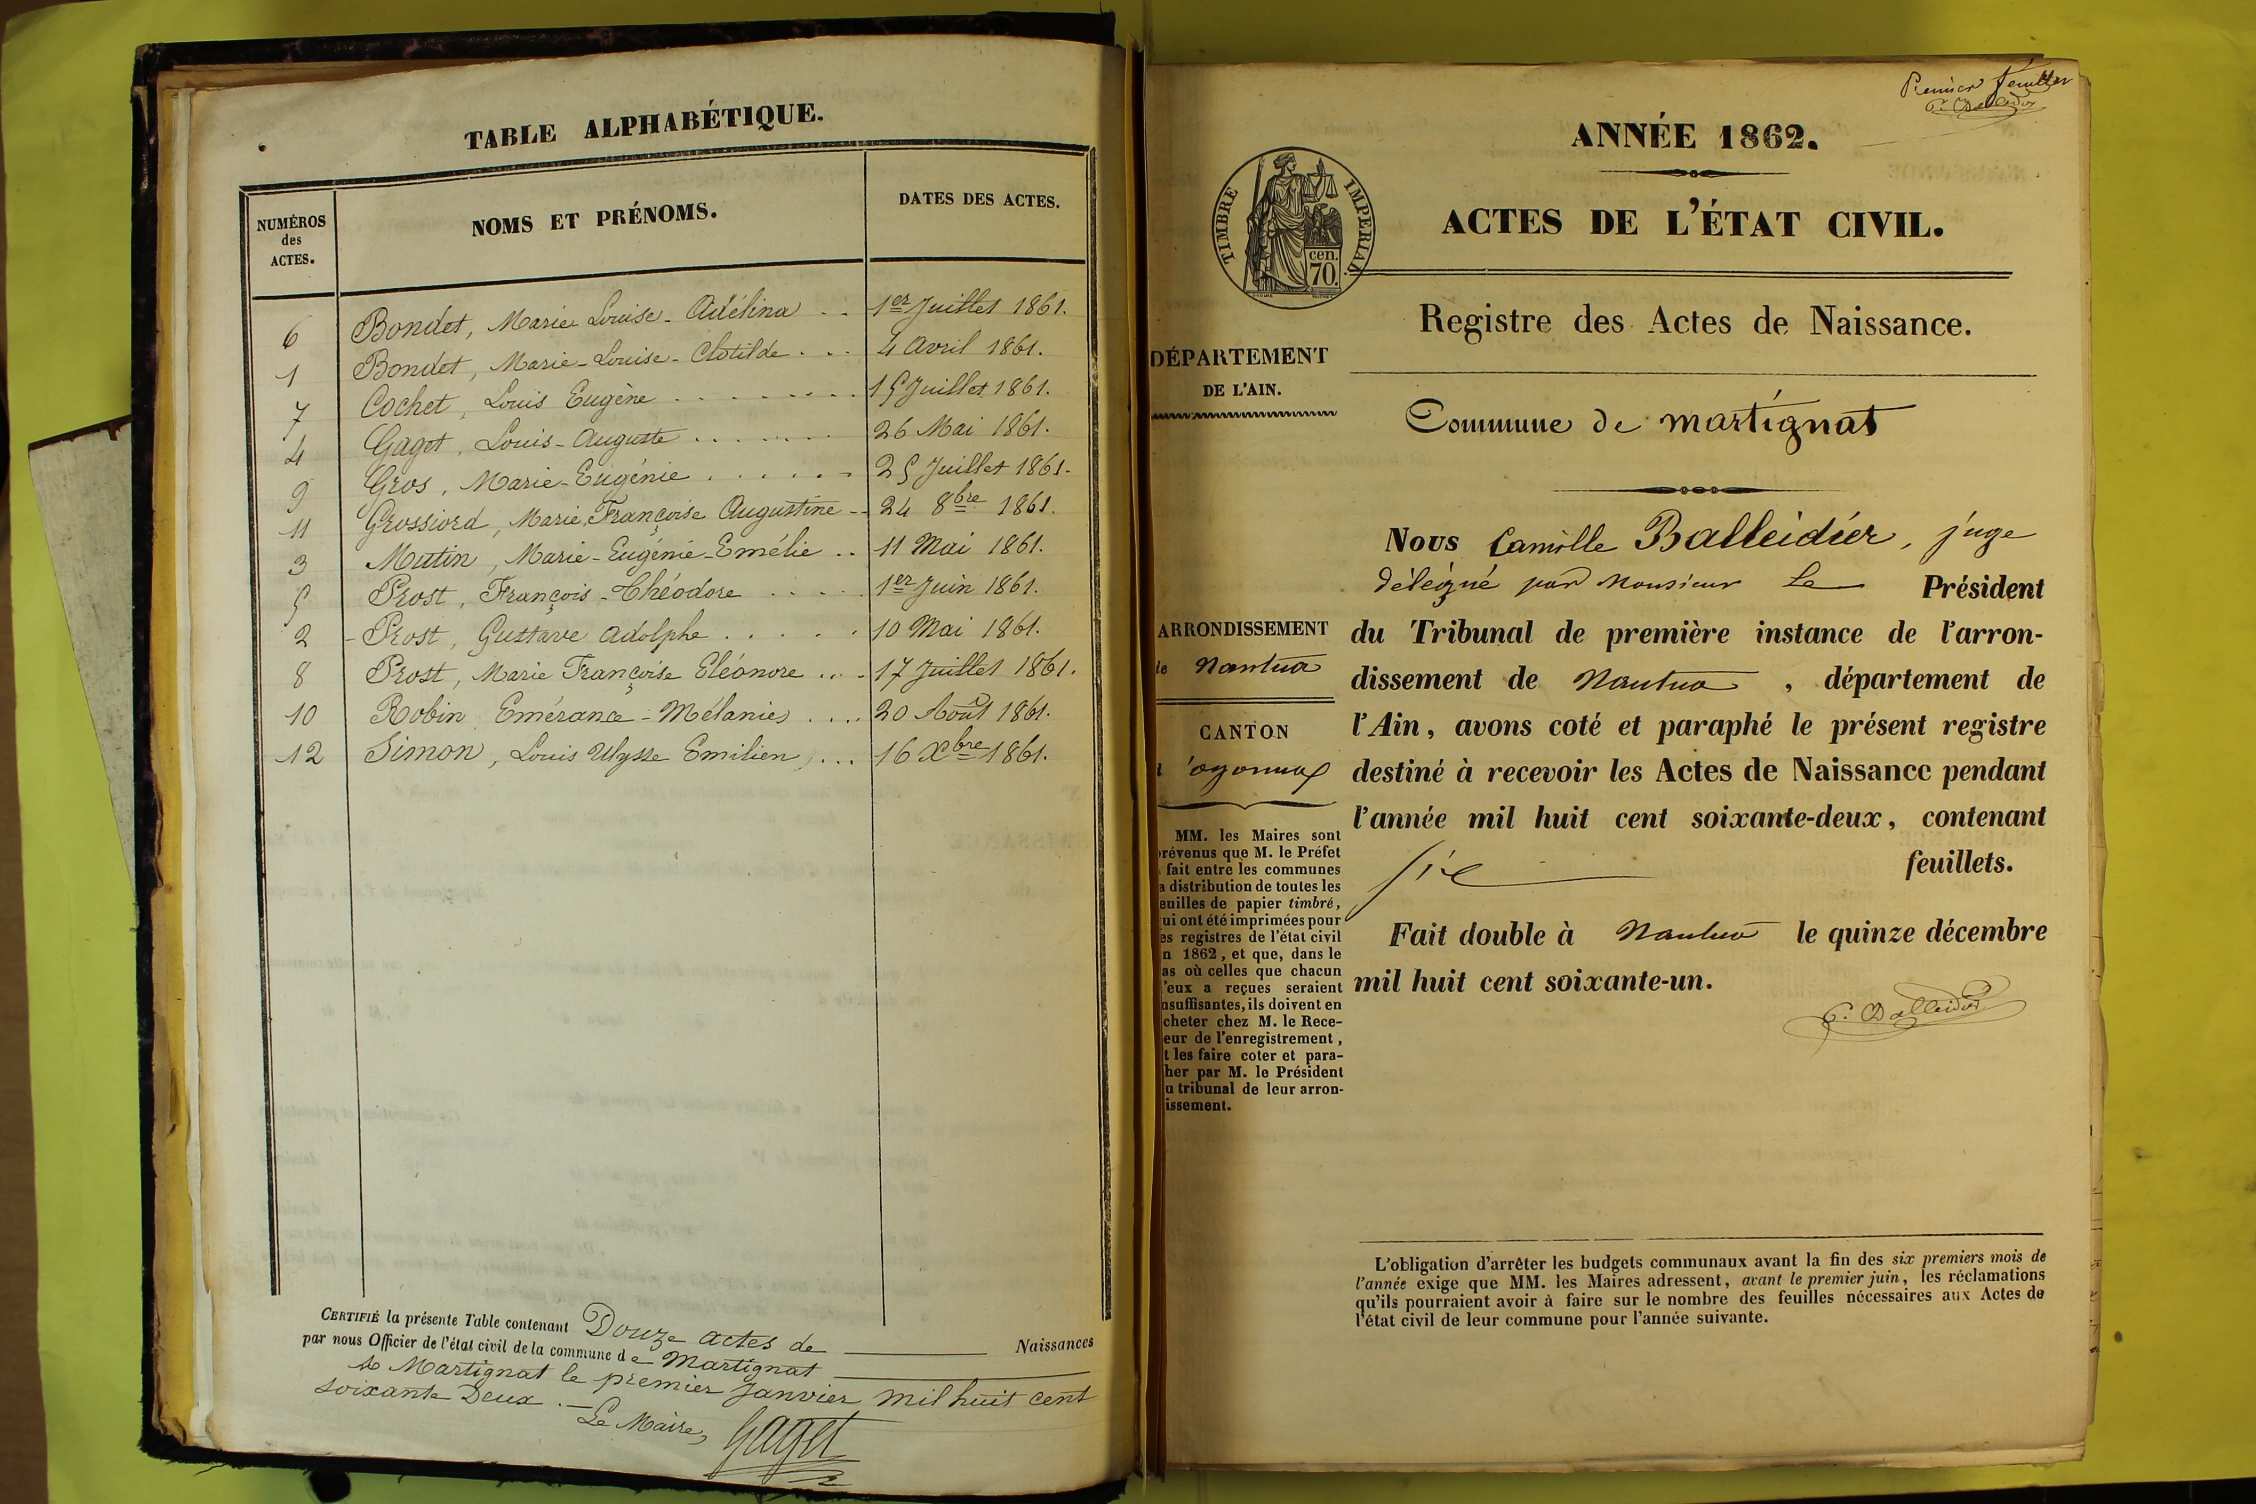 TABLE ALPHABÉTIQUE.
NUMÉROS des ACTES.
NOMS ET PRÉNOMS.
DATES DES ACTES.
6 Bondet, Marie Louise-Adélina . . 1er Juillet 1861.
1 Bondet, Marie-Louise-Clotilde . . . 4 Avril 1861.
7 Cochet, Louis Eugène . . . . . . . . 15 Juillet 1861.
4 Gaget, Louis-Auguste . . . . . . . 26 Mai 1861.
9 Gros, Marie-Eugénie . . . . . . 25 Juillet 1861.
11 Grossiord, Marie, Françoise Augustine -- 24 8bre 1861.
3 Mutin, Marie-Eugénie-Emélie . . 11 Mai 1861.
5 Prost, François-Théodore . . . . . 1er Juin 1861.
2 - Prost, Gustave Adolphe . . . . . 10 Mai 1861.
8 Prost, Marie Françoise Eléonore . . . . 17 Juillet 1861.
10 Robin Emérance-Mélanie . . . . 20 Août 1861.
12 Simon, Louis Ulysse Emilien, . . . 16 Xbre 1861.
CERTIFIÉ la présente Table contenant Douze actes de Naissances
par nous Officier de l'état civil de la commune de Martignat
à Martignat le premier Janvier mil huit cent
soixante Deux . — Le Maire,
Gaget
Premier feuillet
C. Balleidier
ANNÉE 1862.
TIMBRE IMPÉRIAL
cen.
70.
ACTES DE L'ÉTAT CIVIL.
Registre des Actes de Naissance.
DÉPARTEMENT
DE L'AIN.
Commune de Martignat
Nous Camille Balleidier, juge
délégué par Monsieur Le Président
du Tribunal de première instance de l'arron-
dissement de Nantua, département de
l'Ain, avons coté et paraphé le présent registre
destiné à recevoir les Actes de Naissance pendant
l'année mil huit cent soixante-deux, contenant
six feuillets.
Fait double à Nantua le quinze décembre
mil huit cent soixante-un.
C. Balleidier
ARRONDISSEMENT
de Nantua
CANTON
d'oyonnax
MM. les Maires sont
prévenus que M. le Préfet
fait entre les communes
a distribution de toutes les
euilles de papier timbré,
ui ont été imprimées pour
es registres de l'état civil
n 1862, et que, dans le
as où celles que chacun
'eux a reçues seraient
nsuffisantes, ils doivent en
cheter chez M. le Rece-
eur de l'enregistrement,
t les faire coter et para-
her par M. le Président
u tribunal de leur arron-
issement.
L'obligation d'arrêter les budgets communaux avant la fin des six premiers mois de
l'année exige que MM. les Maires adressent, avant le premier juin, les réclamations
qu'ils pourraient avoir à faire sur le nombre des feuilles nécessaires aux Actes de
l'état civil de leur commune pour l'année suivante.